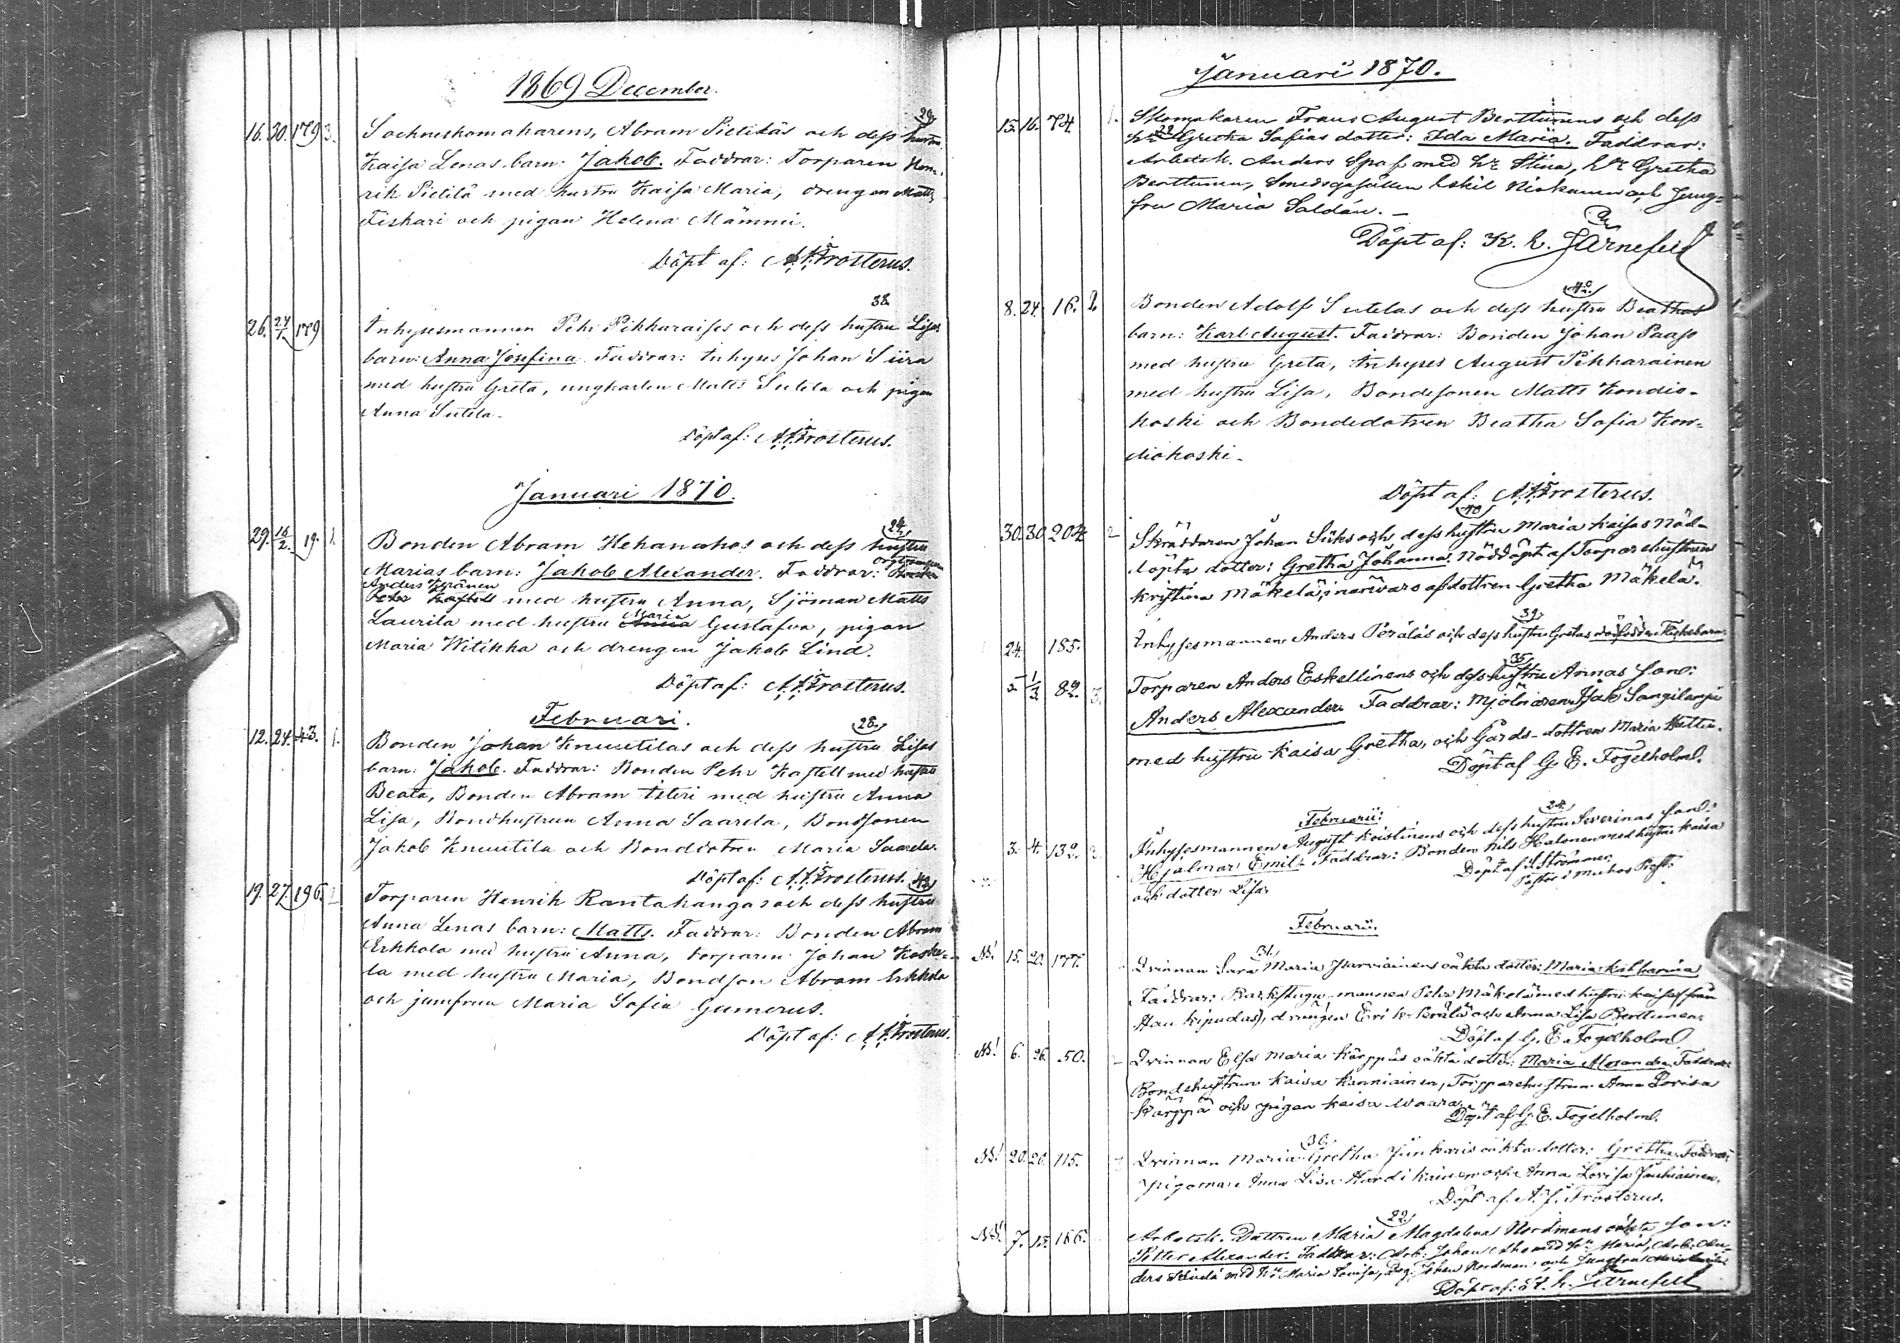 1869 December.
16. 30. 179 3. Sockneskomakarens, Abram Pietiläs och dess hustru 29.
Kaisa Lenas barn: Jakob. Faddrar: Torparen Hen-
rik Pietilä med hustru Kaisa Maria, drengen Matts
Fiskari och pigan Helena Mämmi.
Döpt af: A. J. Frosterus.
38.
26. 27/1. 179 Inhysesmannen Pehr Pikkaraises och dess hustru Lisas
barn: Anna Josefina. Faddrar: Inhyses Johan Siira
med hustru Greta, ungkarlen Matts Sutela och pigan
Anna Sutela.
Döpt af: A. J. Frosterus.
Januari 1870.
24.
29. 16/2. 19. 1. Bonden Abram Hekanahos och dess hustru
Marias barn: Jakob Alexander. Faddrar:
Anders Keränen
Peter Kastell med hustru Anna, Sjöman Matts
Maria
Laurila med hustru Anna Gustafva, pigan
Maria Witikka och drengen Jakob Lind.
Döpt af: A. J. Frosterus.
Februari.
28.
12. 24. 43. 1. Bonden Johan Knuutilas och dess hustru Lisas
barn: Jakob. Faddrar: Bonden Pehr Kastell med hustru
Beata, Bonden Abram Isteri med hustru Anna
Lisa, Bondhustrun Anna Saarela, Bondsonen
Jakob Knuutila och Bonddotren Maria Saarela.
Döpt af: A. J. Frosterus.
43.
19. 27. 196. 1. Torparen Henrik Rantakangas och dess hustru
Anna Lenas barn: Matts. Faddrar: Bonden Abram
Erkkola med hustru Anna, torparen Johan Koske-
la med hustru Maria, Bondson Abram Erkkola
och jumfrun Maria Sofia Gumerus.
Döpt af: A. J. Frosterus.
Januari 1870.
15. 16. 74. 1. Skomakaren Frans August Berttunens och dess
22.
hu Gretha Sofias dotter: Ida Maria. Faddrar:
Arbetsk. Anders Spaf med hu Stina, hu Gretha
Berttunen, Smedsgesällen Eskil Niskanen och Jung-
fru Maria Saldén. –
Döpt af: K. L. Järnefelt
40.
8. 24. 16. 2. Bonden Adolf Sutelas och dess hustru Beathas
barn: Karl August. Faddrar: Bonden Johan Paaso
med hustru Greta, Inhyses August Pikkarainen
med hustru Lisa, Bondesonen Matts Kondio-
koski och Bondedotren Beatha Sofia Kon-
diokoski.
Döpt af: A. J. Frosterus.
40.
30. 30. 204. 2 Skräddaren Johan Siiks och dess hustru Maria Kaisas Nöd-
döpta dotter: Gretha Johanna. Nöddöpt af Torparehustrun
Kristina Mäkelä, i närvaro af dottren Gretha Mäkelä.
39.
24. 185. Inhysesmannen Anders Peräläs och dess hustru Gretas dödfödda Flickebarn.
35.
2 1/2 82. 3. Torparen Anders Eskellinens och dess hustru Annas son:
Anders Alexander. Faddrar: Mjölnaren Isak Sangilanpä
med hustru Kaisa Gretha, och Gårds-dottren Maria
Döpt af G. E. Fogelholm.
Februarii:
24.
3. 4. 132. 3. Inhysesmannen August Koistinens och dess hustru Severinas son:
Hjalmar Emil. Faddrar: Bonden Nils Halonen med hustru Kaisa
och dotter Lisa.
Döpt af Strömmer
Pastor i Muhos
Februarii.
31.
NB! 15. 20. 177. Qvinnan Sara Maria Karviainens oäkta dotter: Maria Katharina
Faddrar: Backstugu-mannen Peter Mäkelä med hustru Kaisa (från
Haukipudas), drängen Erik Perälä och Anna Lisa Berttunen.
Döpt af G. E. Fogelholm
NB! 6. 26. 50. Qvinnan Elsa Maria Kärppäs oäkta dotter: Maria Alexandra. Faddrar:
Bondehustrun Kaisa Kanniainen, Torparehustrun Anna Lovisa
Kärppä och pigan Kaisa Waara.
Döpt af G. E. Fogelholm.
30.
NB! 20. 20. 115. Qvinnan Maria Gretha Junkaris oäkta dotter: Gretha. Faddrar:
pigorna Anna Lisa Hardikainen och Anna Lovisa Juuhiainen.
Döpt af A. J. Frosterus.
22.
NB! 7. 12. 166. Arbetsk. Dottren Maria Magdelena Nordmans oäkta son:
Petter Alexander. Faddrar: Arb. Johan Aho med hu Maria, Arb. An-
ders Kivelä med hu Maria Lovisa, Drg. Johan Nordman och Jungfrun
Döpt af: K. L. Järnefelt